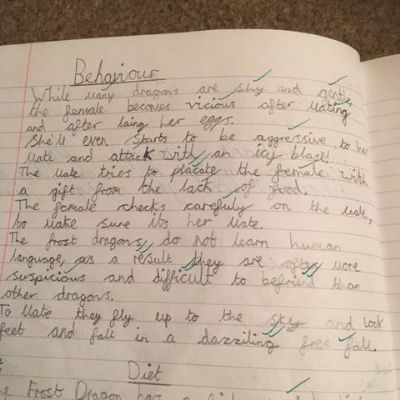 Behaviour
While many dragons are shy and gentle,
the female becomes vicious after Mating
and after laing her eggs.
She'll even starts to be aggressive to her
Mate and attack with an icy blast!
The Mate tries to placate the female with
a gift from the lack of food.
The female checks carefuly on the Mate,
to Make sure its her Mate.
The frost dragons, do not learn human
language, as a result they are often More
suspicious and difficult to befriend than
other dragons.
To Mate they fly up to the sky and lock
feet and fall in a dazziling free fall.
Diet
Frost Dragon has a